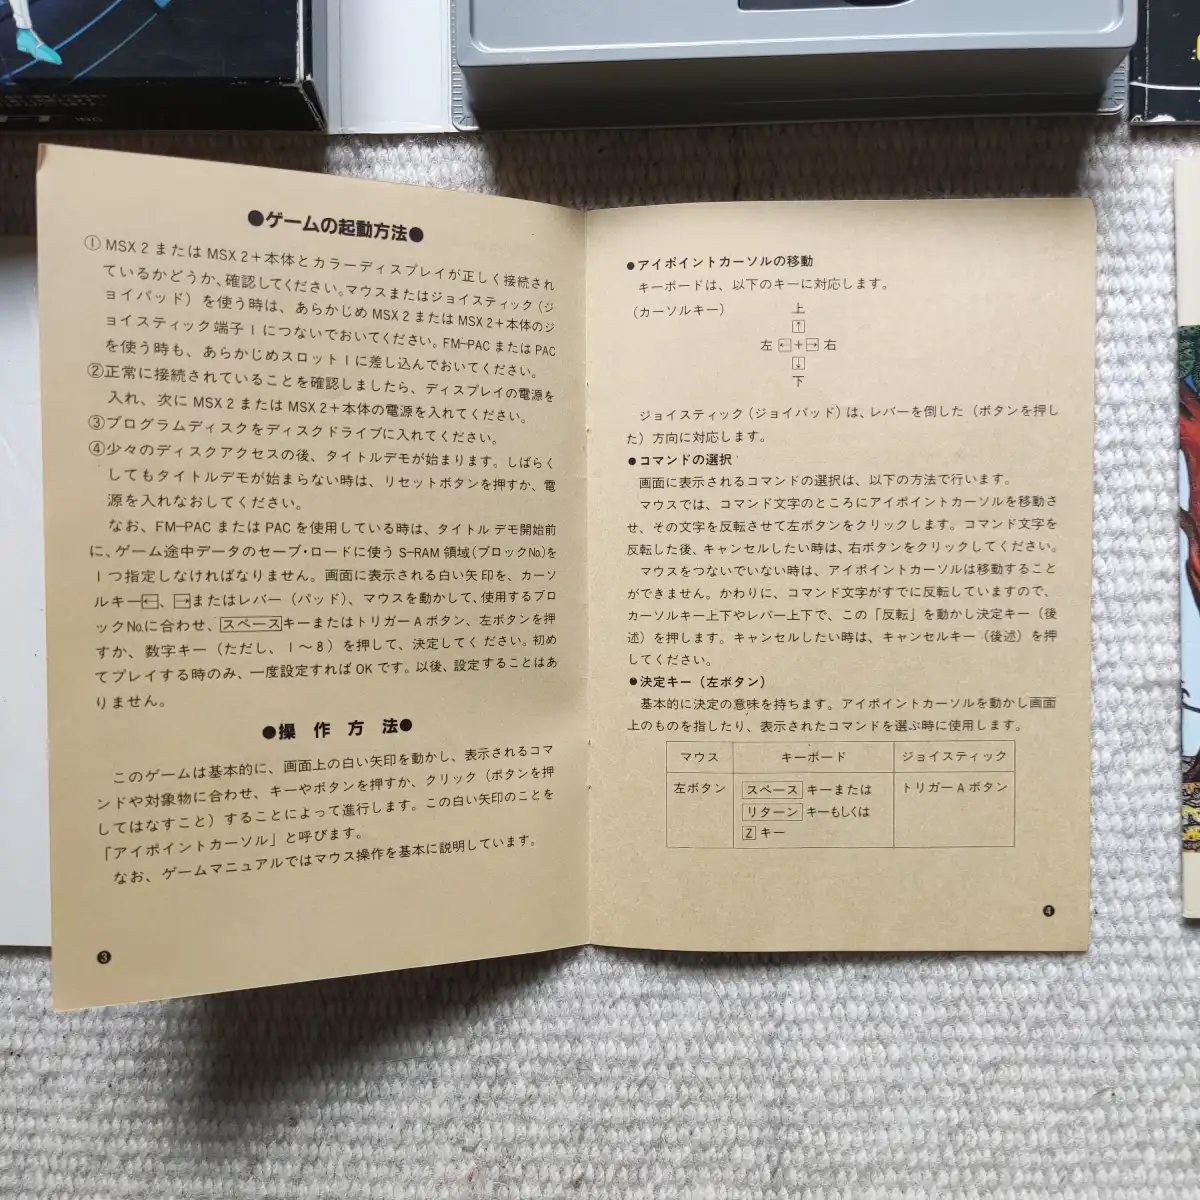 ●ゲームの起動方法●
①MSX 2 または MSX 2＋本体とカラーディスプレイが正しく接続され
ているかどうか、確認してください。マウスまたはジョイスティック（ジ
ョイパッド）を使う時は、あらかじめ MSX 2 または MSX 2＋本体のジ
ョイスティック端子 1 につないでおいてください。FM-PAC または PAC
を使う時も、あらかじめスロット 1 に差し込んでおいてください。
②正常に接続されていることを確認しましたら、ディスプレイの電源を
入れ、次に MSX 2 または MSX 2＋本体の電源を入れてください。
③プログラムディスクをディスクドライブに入れてください。
④少々のディスクアクセスの後、タイトルデモが始まります。しばらく
してもタイトルデモが始まらない時は、リセットボタンを押すか、電
源を入れなおしてください。
なお、FM-PAC または PAC を使用している時は、タイトルデモ開始前
に、ゲーム途中データのセーブ・ロードに使う S-RAM 領域（ブロックNo.）を
1つ指定しなければなりません。画面に表示される白い矢印を、カーソ
ルキー←、→またはレバー（パッド）、マウスを動かして、使用するブロ
ックNo.に合わせ、スペースキーまたはトリガー A ボタン、左ボタンを押
すか、数字キー（ただし、1～8）を押して、決定してください。初め
てプレイする時のみ、一度設定すれば OK です。以後、設定することはあ
りません。
●操作方法●
このゲームは基本的に、画面上の白い矢印を動かし、表示されるコマ
ンドや対象物に合わせ、キーやボタンを押すか、クリック（ボタンを押
してはなすこと）することによって進行します。この白い矢印のことを
「アイポイントカーソル」と呼びます。
なお、ゲームマニュアルではマウス操作を基本に説明しています。
3
●アイポイントカーソルの移動
キーボードは、以下のキーに対応します。
（カーソルキー） 上
↑
左 ←＋→ 右
↓
下
ジョイスティック（ジョイパッド）は、レバーを倒した（ボタンを押し
た）方向に対応します。
●コマンドの選択
画面に表示されるコマンドの選択は、以下の方法で行います。
マウスでは、コマンド文字のところにアイポイントカーソルを移動さ
せ、その文字を反転させて左ボタンをクリックします。コマンド文字を
反転した後、キャンセルしたい時は、右ボタンをクリックしてください。
マウスをつないでいない時は、アイポイントカーソルは移動すること
ができません。かわりに、コマンド文字がすでに反転していますので、
カーソルキー上下やレバー上下で、この「反転」を動かし決定キー（後
述）を押します。キャンセルしたい時は、キャンセルキー（後述）を押
してください。
●決定キー（左ボタン）
基本的に決定の意味を持ちます。アイポイントカーソルを動かし画面
上のものを指したり、表示されたコマンドを選ぶ時に使用します。
マウス キーボード ジョイスティック
左ボタン スペース キーまたは トリガー A ボタン
リターン キーもしくは
Z キー
4